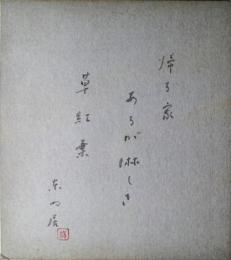 帰る家
あるが淋しき
草紅葉
東明居